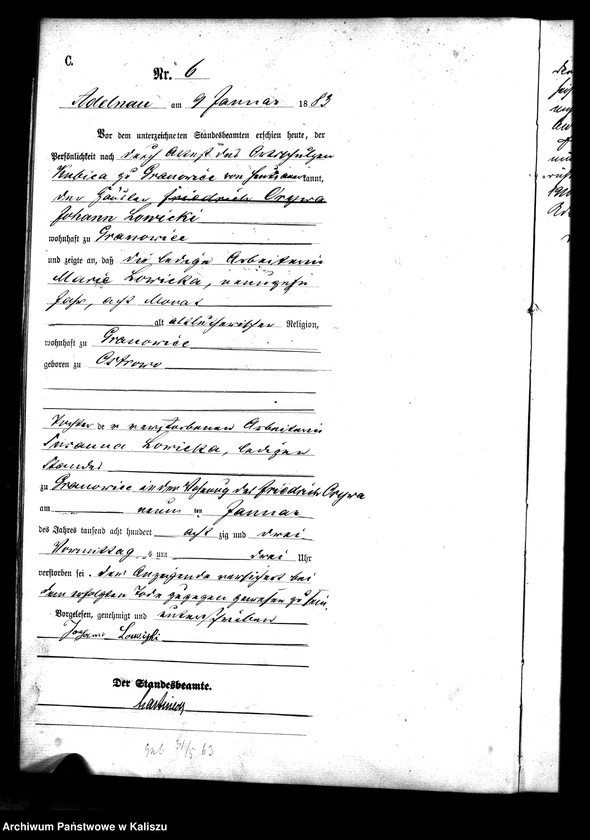 C.
Nr. 6
Adelnau am 9 Januar 1883
Vor dem unterzeichneten Standesbeamten erschien heute, der
Persönlichkeit nach durch Attest des Ortsschulzen
Kubica zu Granowice von heute anerkannt,
der Häusler Friedrich Cryra
Johann Lowicki
wohnhaft zu Granowice
und zeigte an, daß die ledige Arbeiterin
Marie Lowicka, neunzehn
Jahr, acht Monat
alt altlutherischer Religion,
wohnhaft zu Granowice
geboren zu Ostrowo
Tochter der verstorbenen Arbeiterin
Susanna Lowicka, ledigen
Standes
zu Granowice in der Wohnung des Friedrich Cryra
am neunten Januar
des Jahres tausend acht hundert achtzig und drei
Vormittags um drei Uhr
verstorben sei. Der Anzeigende versichert bei
dem erfolgten Tode zugegen gewesen zu sein.
Vorgelesen, genehmigt und unterschrieben
Johann
Der Standesbeamte.
Geb 31/5 63
Archiwum Państwowe w Kaliszu